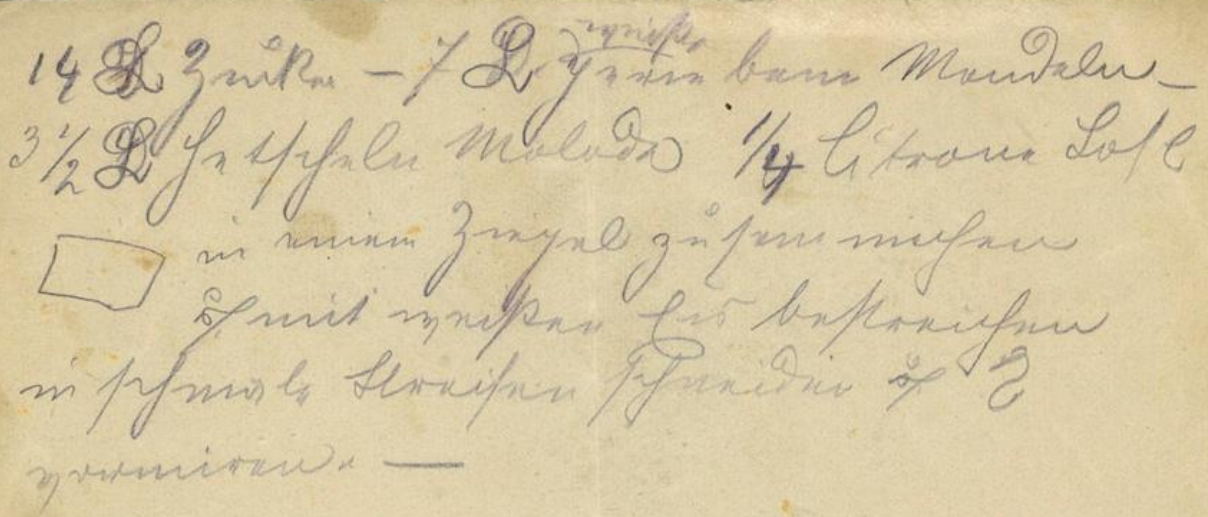 14 ℔ Zucker – 7 ℔ weiße Mandeln –
3 1/2 ℔ Hetscheln Malade 1/4 Citrone Saft
in einem Ziegel zusammen
mit weißen Eis bestreichen
in schmale Streifen schneiden S
vormiren. —